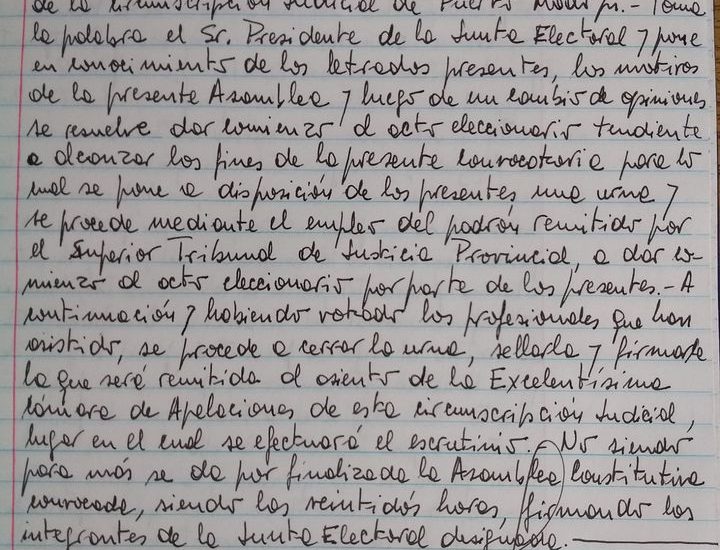 de la circunscripción Judicial de Puerto Madryn.- Toma
la palabra el Sr. Presidente de la Junta Electoral y pone
en conocimiento de los letrados presentes, los motivos
de la presente Asamblea y luego de un cambio de opiniones
se resuelve dar comienzo al acto eleccionario tendiente
a alcanzar los fines de la presente convocatoria para lo
cual se pone a disposición de los presentes una urna y
se procede mediante el empleo del padrón remitido por
el Superior Tribunal de Justicia Provincial, a dar co-
mienzo al acto eleccionario por parte de los presentes.- A
continuación y habiendo votado los profesionales que han
asistido, se procede a cerrar la urna, sellarla y firmarla
la que será remitida al asiento de la Excelentísima
Cámara de Apelaciones de esta circunscripción Judicial,
lugar en el cual se efectuará el escrutinio.- No siendo
para más se da por finalizada la Asamblea Constitutiva
convocada, siendo las veintidós horas, firmando los
integrantes de la Junta Electoral designada.